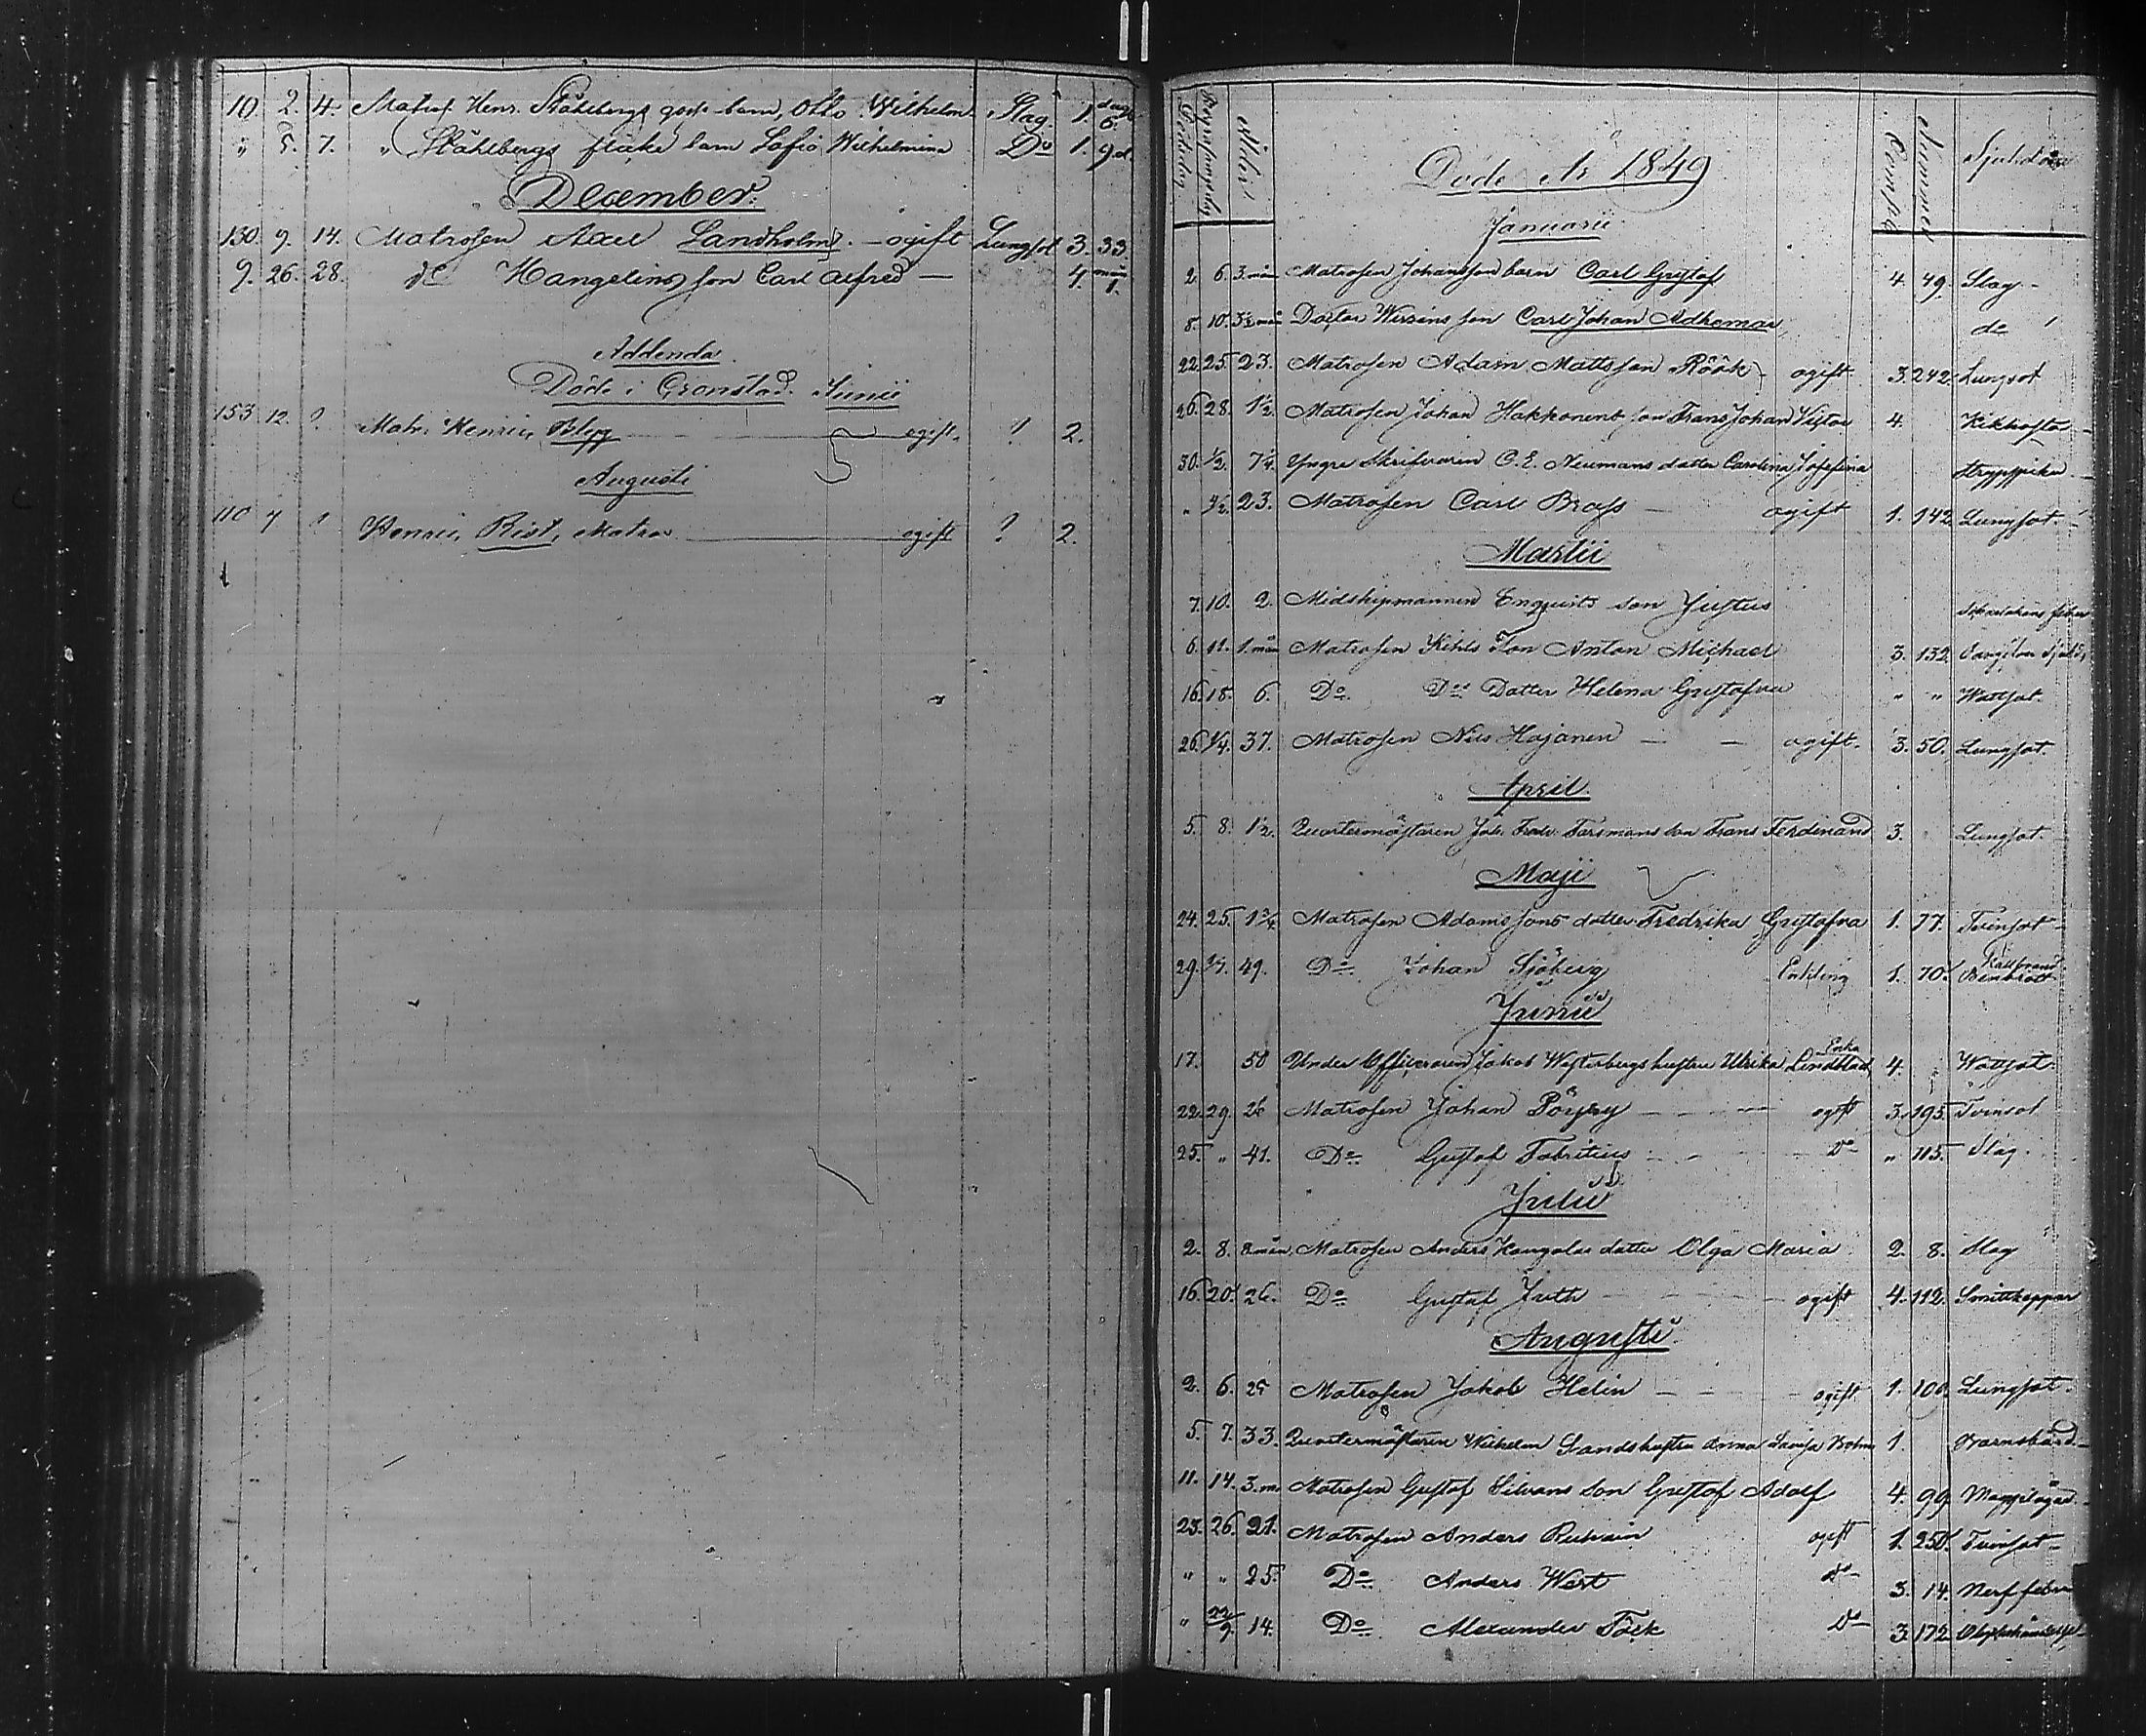 10. 2. 4. Matros Henr. Ståhlbergs goss barn, Otto Wilhelm. Slag. 1. dag 6.
" 5. 7. " Ståhlbergs flicke barn Sofia Wilhelmina Do 1. 9 d.
December.
130. 9. 14. Matrosen Axel Sandholm. — ogift Lungsot 3. 33.
9. 26. 28. do Hangelins son Carl Alfred — 4. mån 1.
Addenda.
Döde i Cronstad. Junii
153 12. ? Matr. Henric Blyg ogift. ? 2.
Augusti
110 7 ? Henric Rist, Matros ogift ? 2.
Dödsdag Begrafningsdag Ålder Compa Nummer Sjukdom
Döde År 1849
Januarii
2. 6. 3. mån Matrosen Johansson barn Carl Gustaf 4. 49. Slag -
8. 10. 3½ mån Doctor Wirzéns son Carl Johan Adhemar do
22. 25. 23. Matrosen Adam Mattsson Röök - ogift 3. 242. Lungsot
26. 28. 1½ Matrosen Johan Hakkonens son Frans Johan Victor 4. Kikhosta -
30. ½. 7¼ Yngre Skrifvaren C. E. Neumans dotter Carolina Josefina Strypsjuka -
" 4/2. 23. Matrosen Carl Brass — ogift 1. 142 Lungsot.
Martii
7. 10. 2. Midshipmannen Enqvists son Justus
6. 11. 1. mån Matrosen Kihls Son Anton Michael 3. 132.
16. 18. 6. Do. Dos Dotter Helena Gustafva " " Wattsot.
26. 1/4. 37. Matrosen Nils Hajanen — — ogift. 3. 50. Lungsot.
April.
5. 8. 1½. Quartermästaren Joh. Fredr. Forsmans son Frans Ferdinand 3. Lungsot.
Maji
24. 25. 1¾ Matrosen Adamssons dotter Fredrika Gustafva 1. 77. Tvinsot -
29. 49. Do Johan Sjöberg Enkling 1. 70. Kallbrand Benbrott
Junii
17. 58 Under Officeraren Jakob Westerbergs hustru Ulrika Lindblad Enka 4. Wattsot.
22. 29. 26 Matrosen Johan Pörsry — — — ogift 3. 195. Tvinsot
25. " 41. Do Gustaf Fabritius - - - Do " 115. Slag.
Julii
2. 8. 8 mån. Matrosen Anders Kangolas dotter Olga Maria 2. 8. Slag
16. 20. 26. Do Gustaf Juth - - - ogift 4. 112. Smittkoppor
Augusti
2. 6. 25 Matrosen Jakob Helin — — ogift 1. 100. Lungsot.
5. 7. 33. Quartermästaren Wilhelm Sands hustru Anna Lovisa Bohm 1. Barnsbörd -
11. 14. 3. m. Matrosen Gustaf Silvans son Gustaf Adolf 4. 99.
23. 26. 21. Matrosen Anders Ruhain ogift 1. 250. Tvinsot -
" " 25. Do Anders West do - 3. 14. Nerffeber
" 22/9. 14. Do Alexander Föök Do 3. 172